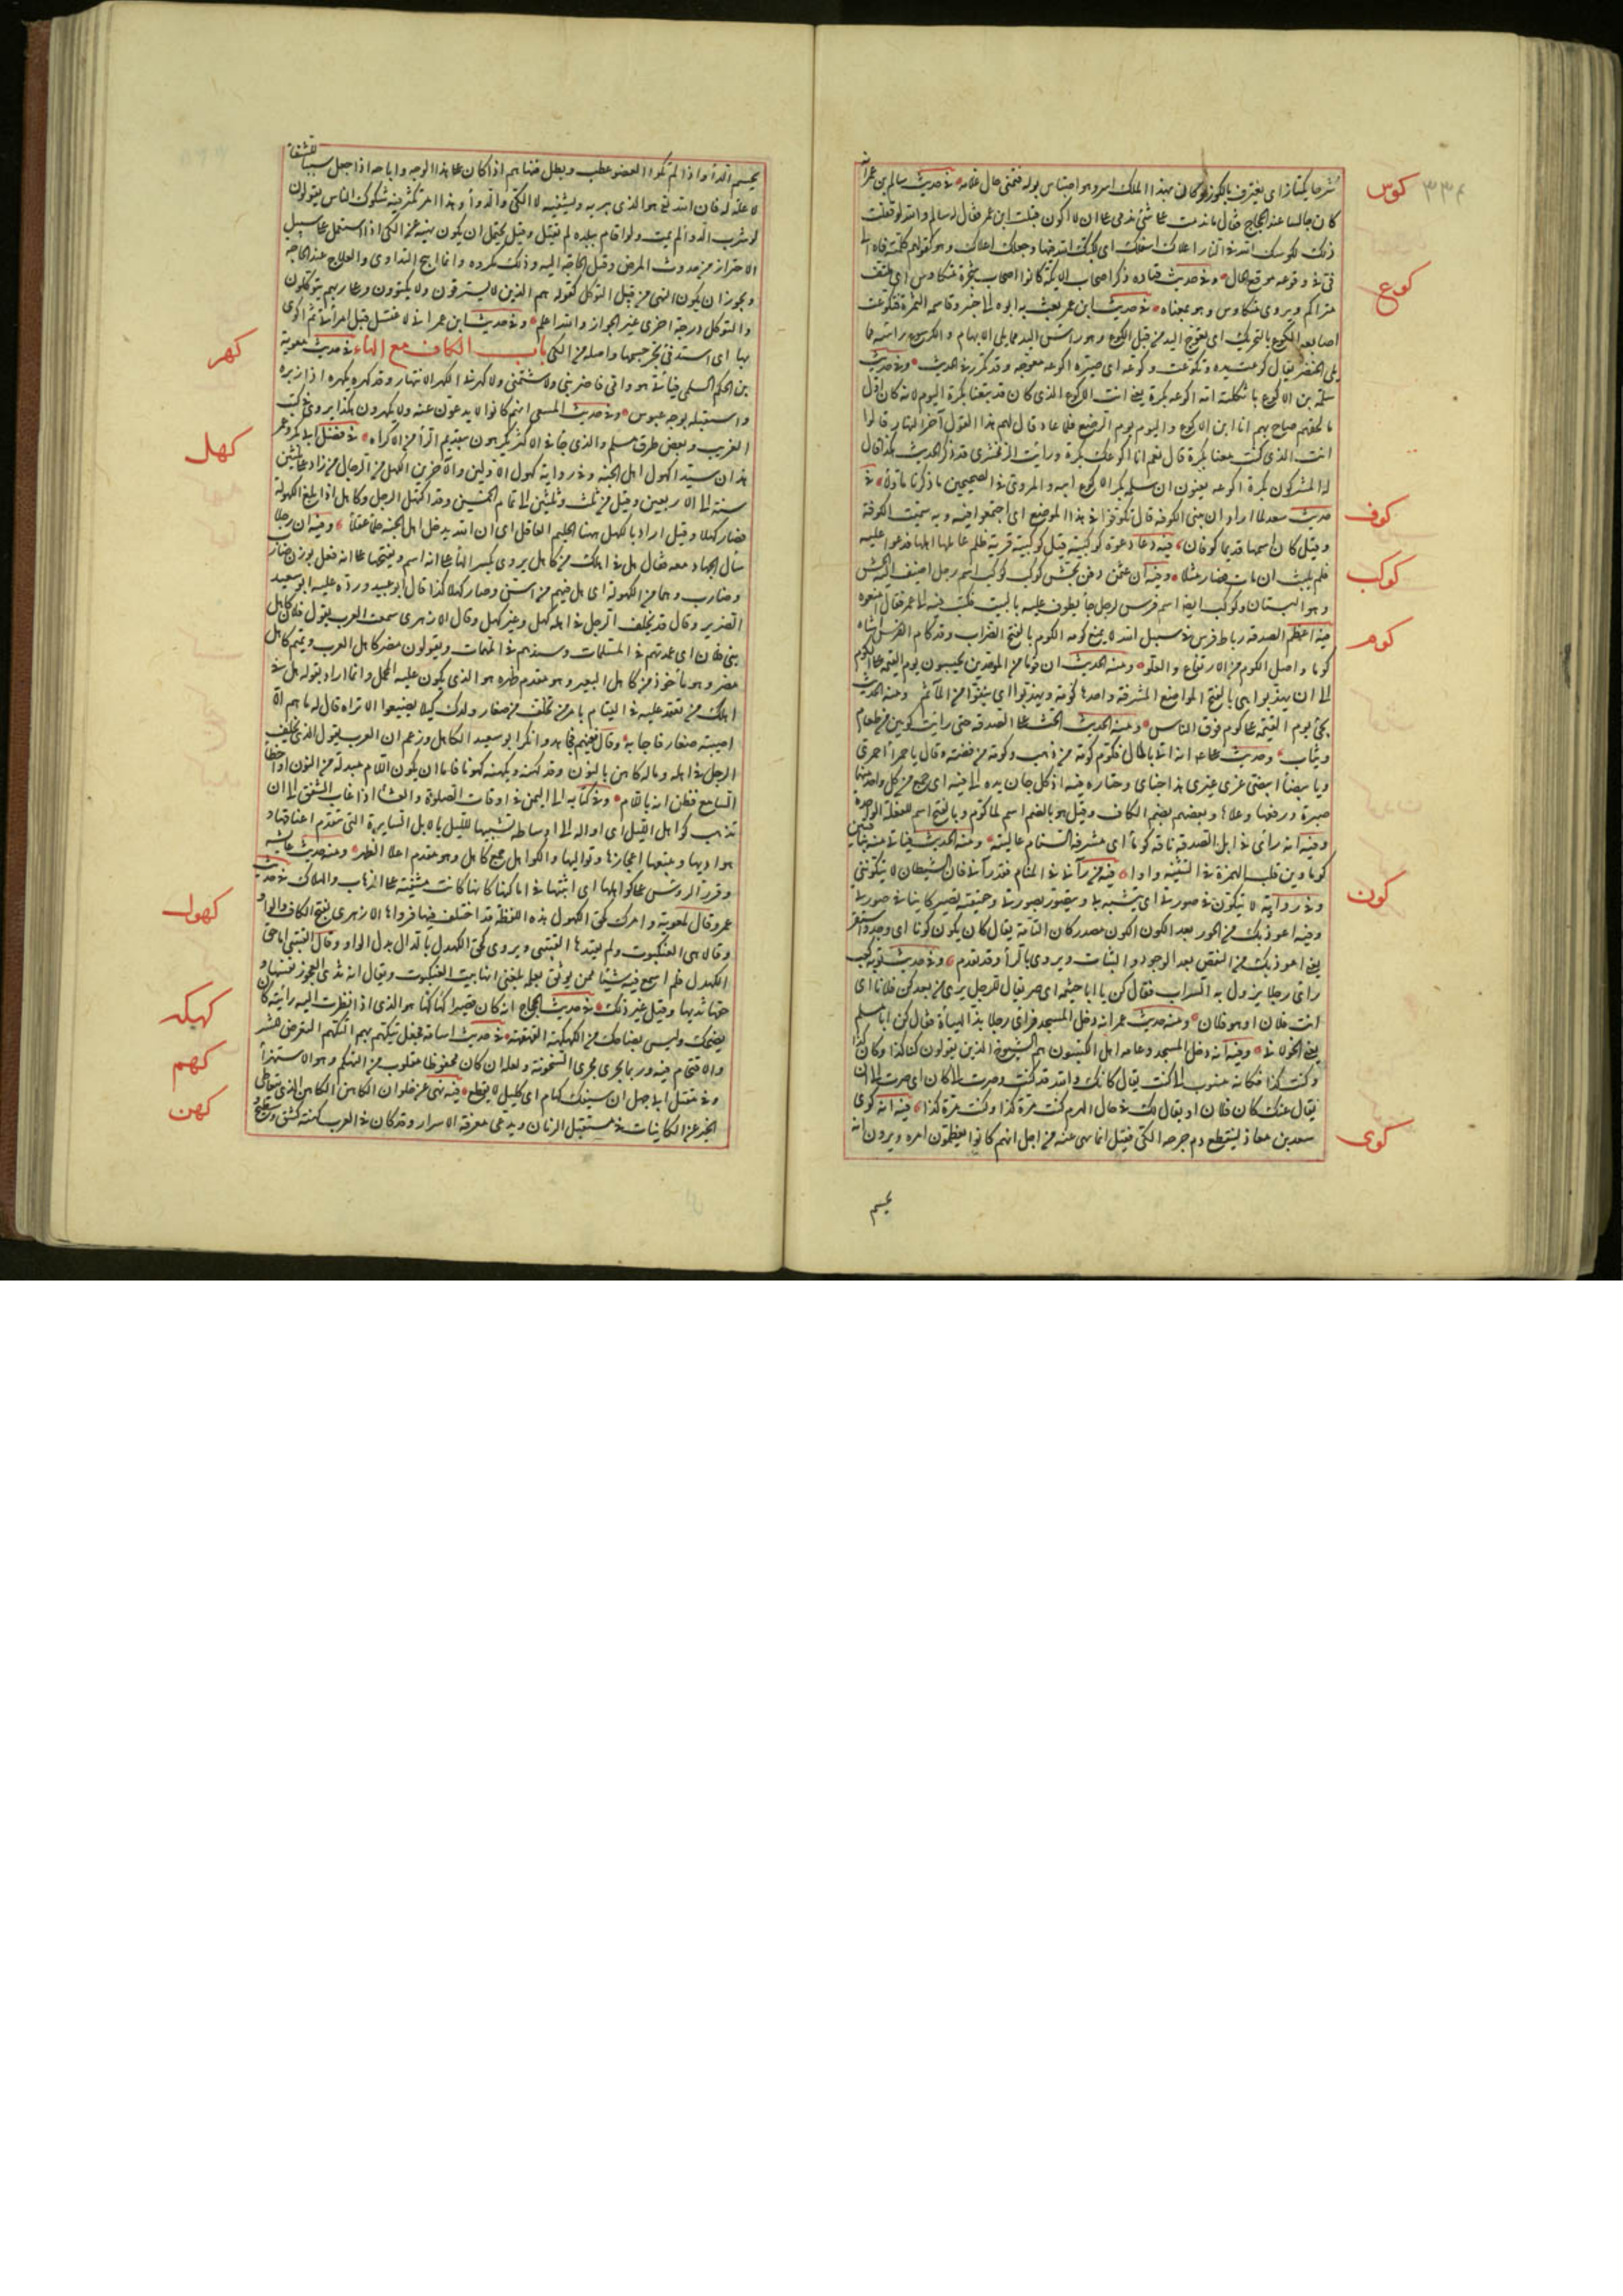 ٣٣٤
كوس
ثم جا يكتاز اى يغترف بالكوز وكان بهذا الملك اسر وهو احتباس بوله فتمنى حال غلامه في حديث سالم بن عبد الله
كان جالسا عند الحجاج فقال ما ندمت على شئ ندمى على ان لا اكون قتلت ابن عمر فقال له سالم والله لو فعلت
ذلك لكوسك الله في النار اعلاك اسفلك اى لكبك الله فيها وجعل اعلاك وهو كقولهم كلمته فاه الى
فى في وقوعه موقع الحال وفي حديث قتادة ذكر اصحاب الايكة كانوا اصحاب شجر متكاوس اى ملتف
كوع
متراكم ويروى متكاوس وهو بمعناه في حديث ابن عمر بعث به ابوه الى خيبر وقاسمهم الثمرة فتكوعت
اصابعه الكوع بالتحريك ان يعوج اليد من قبل الكوع وهو راس اليد مما يلى الابهام والكرسوع راسه مما
يلى الخنصر يقال كوعت يده وتكوعت وكوعه اى صير اكوعه معوجة وقد تكرر في الحديث وفي حديث
سلمة بن الاكوع يا ثكلته امه اكوعه بكرة يعنى انت الاكوع الذى كان قد تبعنا بكرة اليوم لانه كان اول
ما لحقهم صاح بهم انا ابن الاكوع واليوم يوم الرضع فلما عاد قال لهم هذا القول آخر النهار قالوا
انت الذى كنت معنا بكرة قال نعم انا اكوعك بكرة ورأيت الزمخشرى قد ذكر الحديث هكذا قال
له المشركون بكرة اكوعه يعنون ان سلمة بكر الاكوع ابيه والمروى في الصحيحين ما ذكرناه اولا في
كوف
حديث سعد لما اراد ان يبنى الكوفة قال تكوفوا في هذا الموضع اى اجتمعوا فيه وبه سميت الكوفة
وقيل كان اسمها قديما كوفان فيه دعا دعوة كوكبية قيل كوكبية قرية ظلم عاملها اهلها فدعوا عليه
كوكب
فلم يلبث ان مات فصار مثلا وفيه ان عثمن دفن بحش كوكب كوكب اسم رجل اضيف اليه الحش
وهو البستان وكوكب ايضا اسم فرس لرجل جاء يطوف عليه بالبيت فكتب فيه الى عمر فقال امنعوه
كوم
فيه اعظم الصدقة رباط فرس في سبيل الله لا يمنع كومه الكوم بالفتح الضراب وقد كام الفرس انثاه
كوما واصل الكوم من الارتفاع والعلو ومنه الحديث ان قوما من الموحدين يحبسون يوم القيمة على الكوم
الى ان يهذبوا هى بالفتح المواضع المشرفة واحدها كومة ويهذبوا اى ينقوا من المآثم ومنه الحديث
يجئ يوم القيمة على كوم فوق الناس ومنه الحديث الحث على الصدقة حتى رايت كومين من طعام
وثياب وحديث على انه اتى بالمال فكوم كومة من ذهب وكومة من فضة وقال يا حمراء احمرى
ويا بيضاء ابيضى غرى غيرى هذا جناى وخياره فيه اذ كل جان يده الى فيه اى جمع من كل واحد منهما
صبرة ورفعها وعلاها وبعضهم بضم الكاف وقيل هو بالضم اسم لما كوم وبالفتح اسم للفعلة الواحدة
وفيه انه رأى في ابل الصدقة ناقة كوماء اى مشرفة السنام عالية ومنه الحديث فيأتى منه بناقتين
كون
كوماوين قلب الهمزة في التثنية واوا فيه من رآنى في المنام فقد رآنى فان الشيطان لا يتكوننى
وفي رواية لا يتكون في صورتى اى يتشبه بى ويتصور بصورتى وحقيقته يصير كاينا في صورتى
وفيه اعوذ بك من الحور بعد الكون الكون مصدر كان التامة يقال كان يكون كونا اى وجد واستقر
يعنى اعوذ بك من النقص بعد الوجود والثبات ويروى بالراء وقد تقدم وفي حديث توبة كعب
راى رجلا يزول به السراب فقال كن يا ابا خيثمة اى صر يقال للرجل يرى من بعد كن فلانا اى
انت فلان او هو فلان ومنه حديث عمر انه دخل المسجد فراى رجلا بذ الهيئة فقال كن ابا مسلم
يعنى الخولانى وفيه انه دخل المسجد وعامة اهله الكنتيون هم الشيوخ الذين يقولون كنا كذا وكان كذا
وكنت كذا فكانه منسوب الى كنت يقال كانك والله قد كنت وصرت الى كان اى صرت الى ان
يقال عنك كان فلان او يقال لك في حال الهرم كنت مرة كذا وكنت مرة كذا فيه انه كوى
كوى
سعد بن معاذ لينقطع دم جرحه الكى فقيل انما نهى عنه من اجل انهم كانوا يعظمون امره ويرون انه
يحسم
يحسم الداء واذا لم يكو العضو عطب وبطل فنهاهم اذا كان على هذا الوجه واباحه اذا جعل سببا للشفاء
لا علة له فان الله تع هو الذى يبريه ويشفيه لا الكى والدواء وهذا امر تكثر فيه شكوك الناس يقولون
لو شرب الدواء لم يمت ولو اقام ببلده لم يقتل وقيل يحتمل ان يكون نهيه عن الكى اذا استعمل على سبيل
الاحتراز من حدوث المرض وقبل الحاجة اليه وذلك مكروه وانما ابيح التداوى والعلاج عند الحاجة
ويجوز ان يكون النهى من قبل التوكل كقوله هم الذين لا يسترقون ولا يكتوون وعلى ربهم يتوكلون
والتوكل درجة اخرى غير الجواز والله اعلم وفي حديث ابن عمر انى لاغتسل قبل امرأتى ثم اتكوى
كهر
بها اى استدفئ بحر جسمها واصله من الكى باب الكاف مع الهاء في حديث معوية
بن الحكم السلمى فبأبى هو وامى فاضربنى ولا شتمنى ولا كهرنى الكهر الانتهار وقد كهره يكهره اذا زبره
واستقبله بوجه عبوس وفي حديث المسعى انهم كانوا لا يدعون عنه ولا يكهرون هكذا يروى في كتب
كهل
الغريب وبعض طرق مسلم والذى جاء في الاكثر يكرهون بتقديم الراء من الاكراه في فضل ابى بكر وعمر
هذان سيدا كهول اهل الجنة وفي رواية كهول الاولين والآخرين الكهل من الرجال من زاد على ثلثين
سنة الى الاربعين وقيل من ثلث وثلثين الى تمام الخمسين وقد اكتهل الرجل وكاهل اذا بلغ الكهولة
فصار كهلا وقيل اراد بالكهل ههنا الحليم العاقل اى ان الله يدخل اهل الجنة حلماء عقلاء وفيه ان رجلا
سأل الجهاد معه فقال هل في اهلك من كاهل يروى بكسر الهاء على انه اسم وبفتحها على انه فعل بوزن ضارب
وضارب وهما من الكهولة اى هل فيهم من اسن وصار كهلا كذا قال ابو عبيد ورده عليه ابو سعيد
الضرير وقال قد يخلف الرجل في اهله كهل وغير كهل وقال الازهرى سمعت العرب يقول فلان كاهل
بنى فلان اى عمدتهم في الملمات وسندهم في المهمات ويقولون مضر كاهل العرب وتميم كاهل
مضر وهو مأخوذ من كاهل البعير وهو مقدم ظهره هو الذى يكون عليه المحمل وانما اراد بقوله هل في
اهلك من تعتمد عليه في القيام بامر من تخلف من صغار ولدك كيلا يضيعوا الا تراه قال له ما هم الا
اصيبية صغار فاجابه وقال ففيهم فجاهد وانكر ابو سعيد الكاهل وزعم ان العرب يقول الذى يخلف
الرجل في اهله وماله كاهن بالنون وقد كهنه ويكهنه كهونا فاما ان يكون اللام مبدلة من النون او اخطأ
السامع فظن انه باللام وفي كتابه الى اليمن في اوقات الصلوة والعشاء اذا غاب الشفق الى ان
تذهب كواهل الليل اى اوائله الى اوساطه تشبيها لليل بالابل السايرة التى تتقدم اعناقها و
هواديها ويتبعها اعجازها وتواليها والكواهل جمع كاهل وهو مقدم اعلا الظهر ومنه حديث عايشة
كهول
وقرر الروس على كواهلها اى اثبتها في اماكنها كانها كانت مشفية على الذهاب والهلاك في حديث
عمرو قال لمعوية وامرك كحق الكهول هذه اللفظة قد اختلف فيها فرواها الازهرى بفتح الكاف والواو
وقال هى العنكبوت ولم يقيدها القتيبى ويروى كحق الكهدل بالدال بدل الواو وقال القتيبى اما حق
الكهدل فلم اسمع فيه شيئا ممن يوثق بعلمه بلغنى انها بيت العنكبوت ويقال انه ثدى العجوز نفسها و
كهكه
حقها ثديها وقيل غير ذلك في حديث الحجاج انه كان قصيرا كهاكها هو الذى اذا نظرت اليه رأيته كانه
كهم
يضحك وليس بضاحك من الكهكهة القهقهة في حديث اسامة فجعل يتكهم بهم التكهم التعرض للشر
والاقتحام فيه وربما يجرى مجرى السخرية ولعله ان كان محفوظا مقلوب من التهكم وهو الاستهزاء
كهن
وفي مقتل ابى جهل ان سيفك كهام اى كليل لا يقطع فيه نهى عن حلوان الكاهن الكاهن الذى يتعاطى
الخبر عن الكاينات في مستقبل الزمان ويدعى معرفة الاسرار وقد كان في العرب كهنة كشق وسطيح و